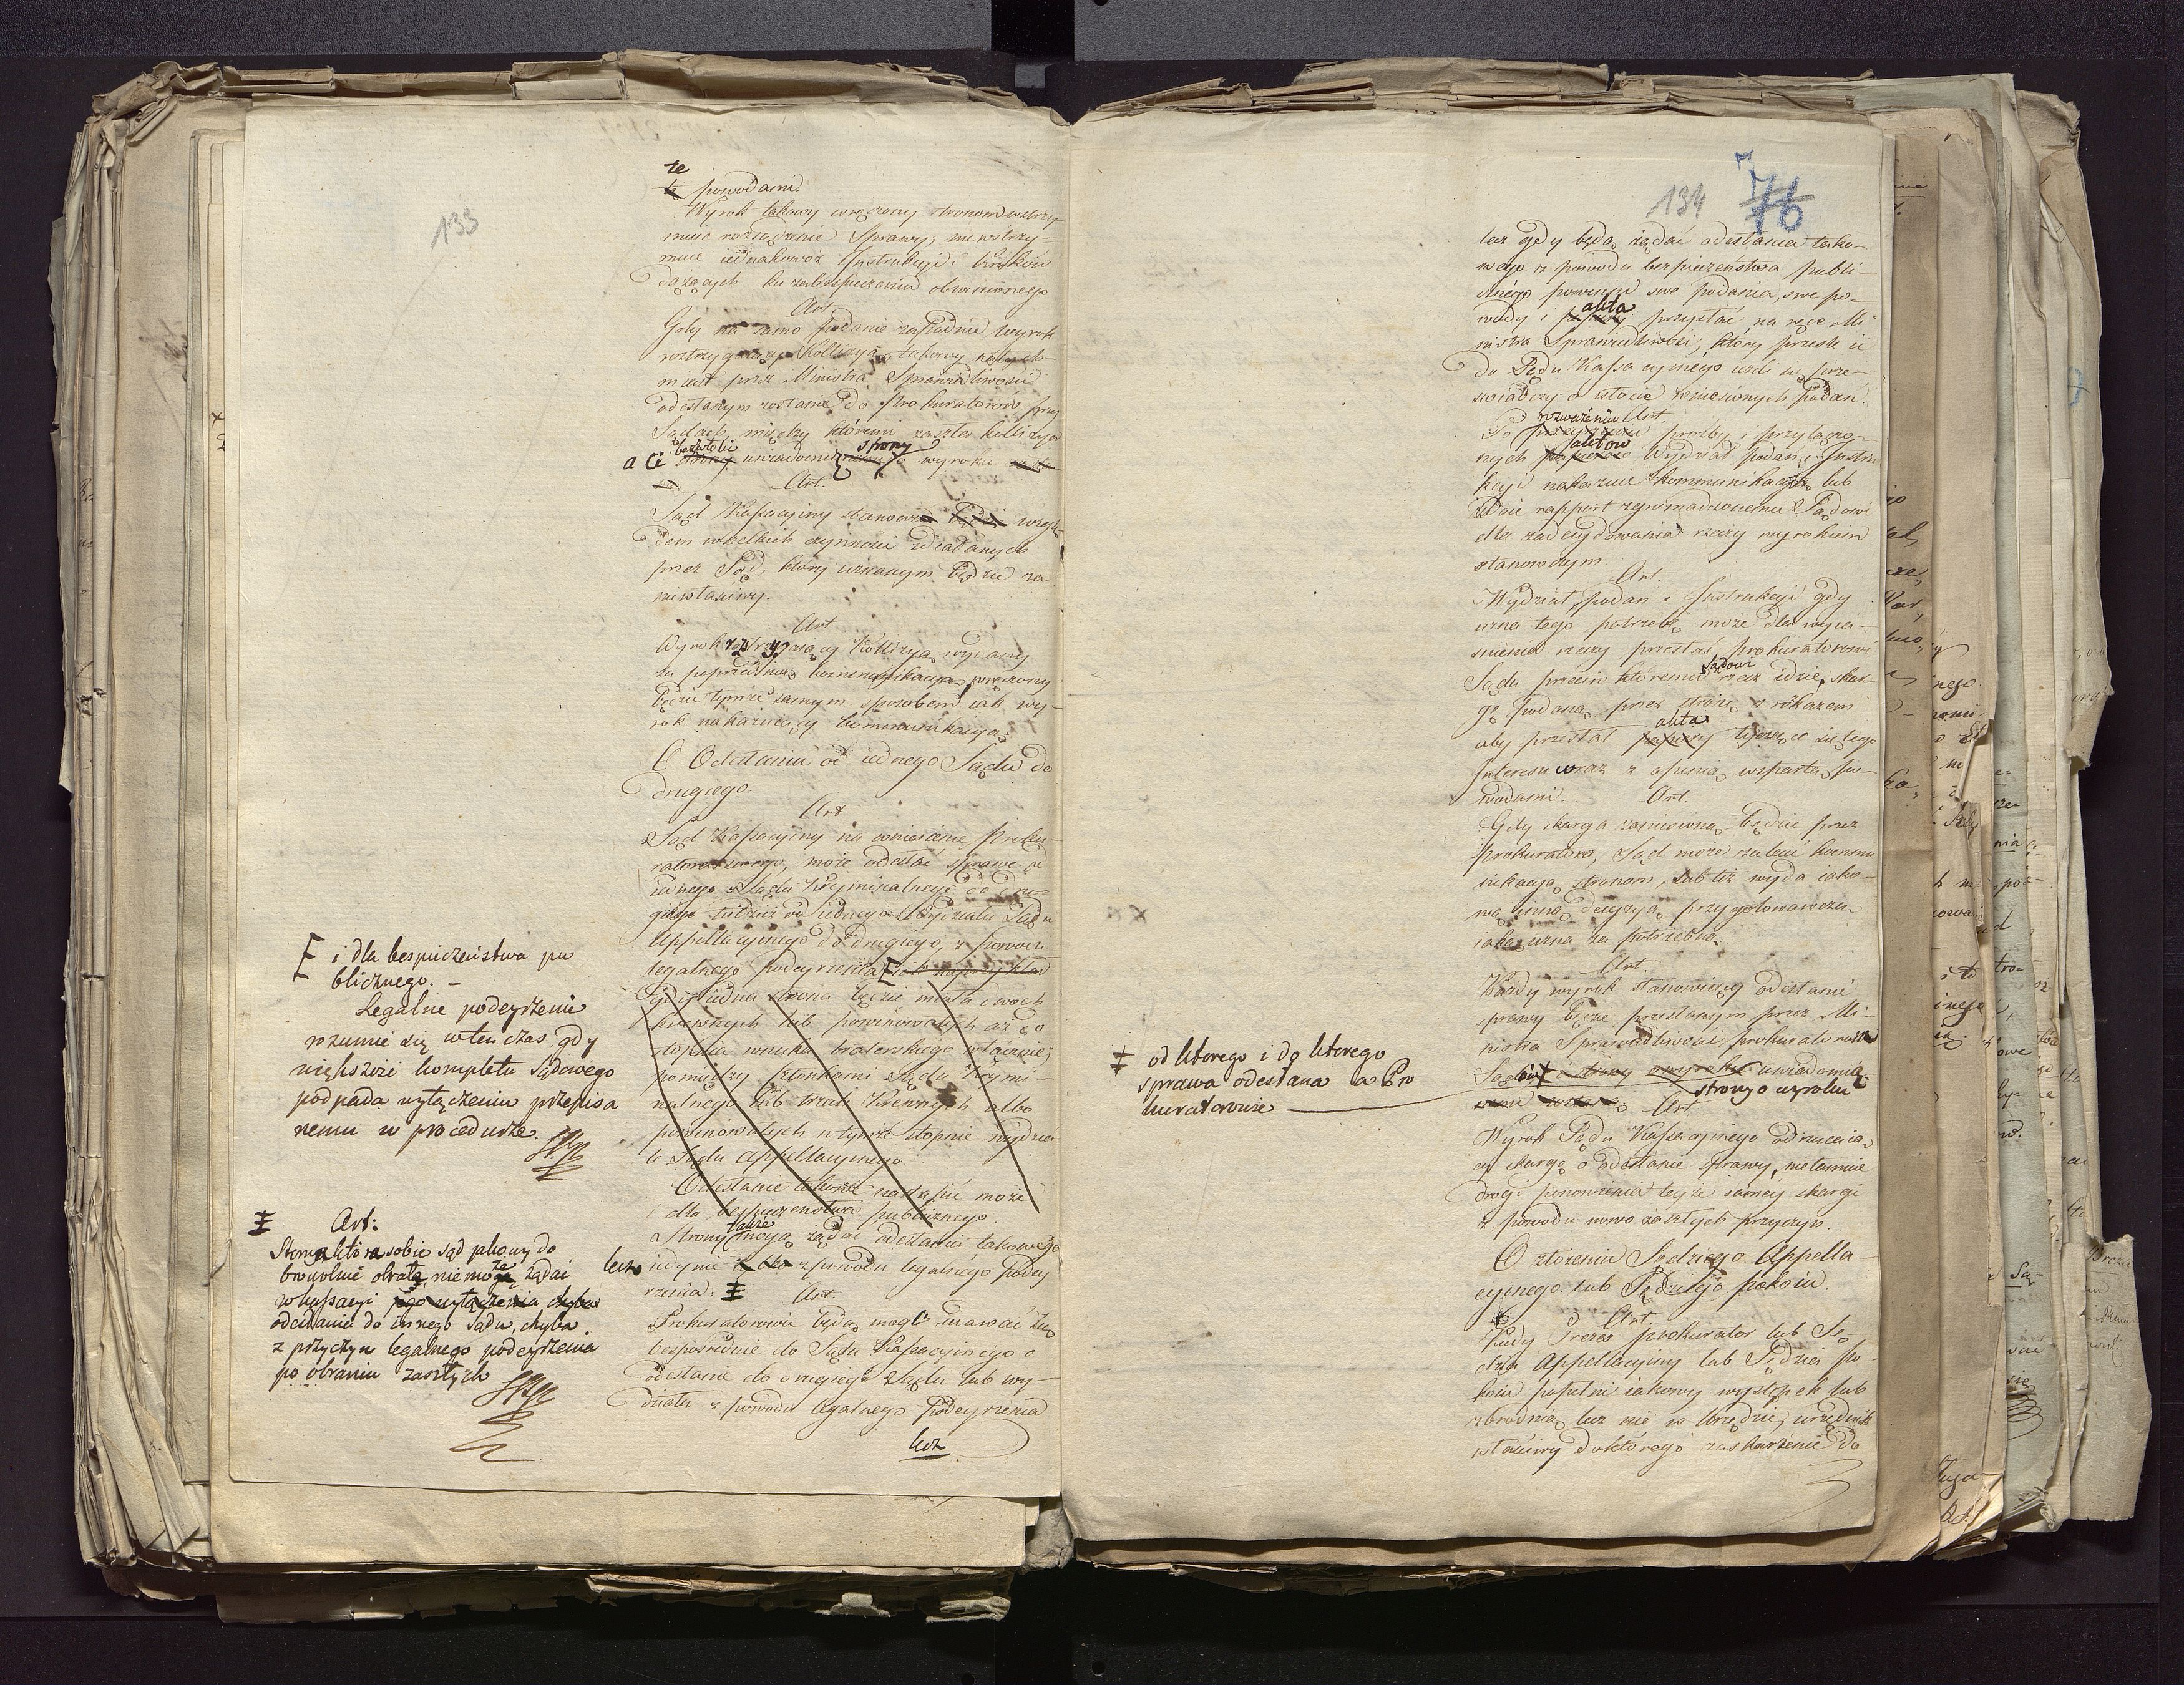 133
że
powodami.
Wyrok takowy wręczony stronom wstrzy-
muie rozsądzenie Sprawy; niewstrzy-
muie iednakowoż Instrukcyi i kroków
dążących ku zabespieczeniu obwinionego
Art
Gdy na samo podanie zapadnie wyrok
roztrzygaiący Kollizyą, takowy natych-
miast przez Ministra Sprawiedliwości
odesłanym zostanie do Prokuratorów przy
Sądach między któremi zaszła kollizya
a Ci bezzwłocznie uwiadomią strony o wyroku
Art.
Sąd Kassacyiny stanowi wzglę-
dem wszelkich czynności zdziałanych
przez Sąd, który uznanym będzie za
niewłaściwy.
Art
Wyrok rozstrzygaiący Kollizyą wydany
za poprzednią kommunikacyą, wręczony
będzie tymże samym sposobem iak wy-
rok nakazuiący kommunikacyą.
O Odesłaniu od iednego Sądu do
drugiego.
Art
Sąd Kassacyiny na wniesienie Proku-
ratora swego, może odesłać sprawę od
iednego Sądu Kryminalnego do dru-
giego tudzież od iednego Wydziału Sądu
Appellacyinego do drugiego, z powodu
legalnego podeyrzenia iak naprzykład
gdy iedna strona będzie miała dwóch
krewnych lub powinowatych aż do
stopnia wnuka braterskiego włącznie,
pomiędzy członkami Sądu Krymi-
nalnego lub trzech Krewnych albo
powinowatych w tymże stopniu w wydzia-
le Sądu Appellacyinego
Odesłanie takowe nastąpić może
i dla bespieczeństwa publicznego.
Strony także mogą żądać odesłania takowego
lecz iedynie z powodu legalnego podey
rzenia. Art.
Prokuratorowie będą mogli udawać się
bespośrednie do Sądu Kassacyinego o
odesłanie do drugiego Sądu lub wy-
działu z powodu legalnego Podeyrzenia
lecz
i dla bespieczeństwa pu
blicznego. –
Legalne podeyrzenie
rozumie się wtenczas gdy
większość kompletu sądowego
podpada wyłączeniu przepisa
nemu w procedurze.
Art:
Strona która sobie sąd jakowy do
browolnie obrała, niemoże żądać
w kassacyi jego wyłączenia chyba
odesłania do innego Sądu, chyba
z przyczyn legalnego podeyrzenia
po obraniu zaszłych
134 76
lecz gdy będą żądać odesłania tako-
wego z powodu bezpieczeństwa publi-
cznego powinni swe podania, swe po-
wody i akta przysłać na ręce Mi-
nistra Sprawiedliwości, który prześle ie
do Sądu Kassacyinego ieżeli się prze-
świadczy o istocie rzeczonych podań.
Art.
Po rozważeniu prozby i przyłączo-
nych aktów Wydział podań i Instru
kcyi nakazuie kommunikacyą lub
zdaie rapport zgromadzonemu Sądowi
dla zadecydowania rzeczy wyrokiem
stanowczym
Art.
Wydział podań i Instrukcyi gdy
uzna tego potrzebę może dla wyia-
śnienia rzeczy przesłać prokuratorowi
Sądu przeciw któremu sądowi rzecz idzie, skar-
gę podaną przez stronę z rozkazem
aby przesłał akta tyczące się tego
Interesu wraz z opinią wspartą po-
wodami. Art.
Gdy skarga zaniesioną będzie przez
prokuratora, Sąd może zalecić kommu
nikacyą stronom, lub też wyda iako-
wą inną decyzyą przygotowawczą
iaką uzna za potrzebną.
Art.
Każdy wyrok stanowiący odesłanie
sprawy będzie przesłanym przez Mi-
nistra Sprawiedliwości prokuratorom
Sądów uwiadomią
strony o wyroku
Art
Wyrok Sądu Kassacyinego odrzucaią-
cy skargę o odesłanie sprawy, nietamuie
drogi ponowienia teyże samey skargi
z powodu nowo zaszłych przyczyn.
O złożeniu Sędziego Appella-
cyinego lub Sędziego pokoiu.
Art.
Kiedy Prezes prokurator lub Sę
dzia Appellacyiny lub Sędzia po-
koiu popełni iakowy występek lub
zbrodnią, lecz nie w Urzędzie, urzędnik
właściwy do którego zaskarżenie do
od którego i do którego
sprawa odesłana a Pro
kuratorowie